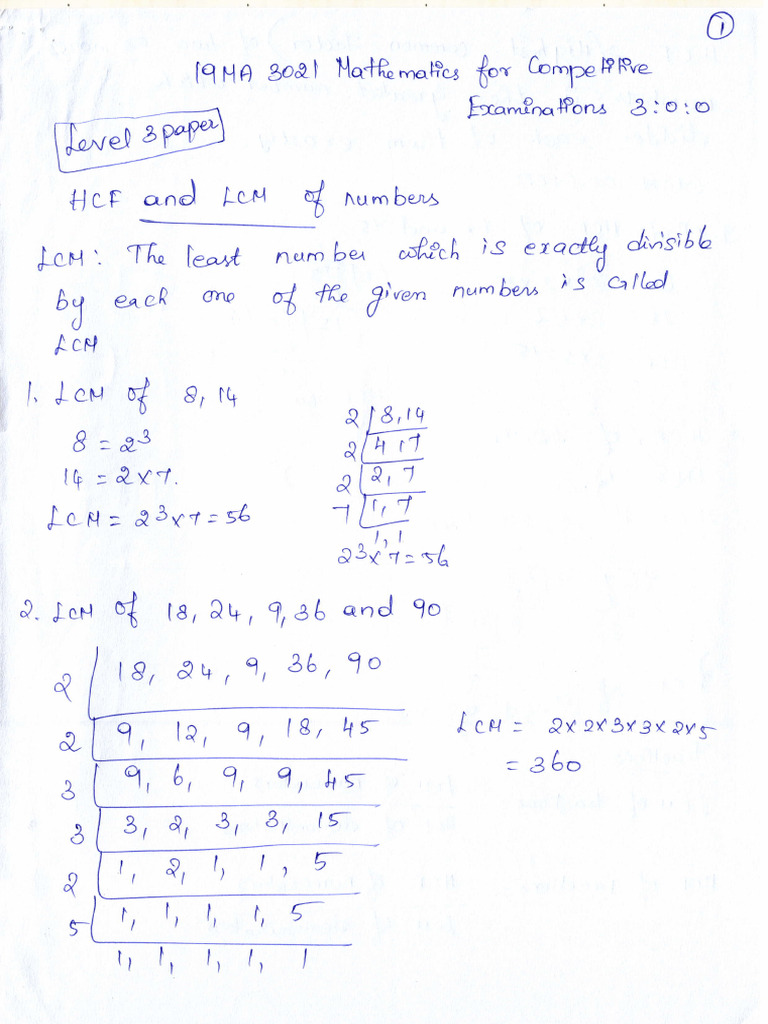 1
19MA 3021 Mathematics for Competitive
Examinations 3:0:0
Level 3 paper
HCF and LCM of numbers
LCM: The least number which is exactly divisible
by each one of the given numbers is called
LCM
1. LCM of 8, 14
8 = 2³
14 = 2×7.
LCM = 2³×7 = 56
2 | 8, 14
2 | 4, 7
2 | 2, 7
7 | 1, 7
1, 1
2³×7 = 56
2. LCM of 18, 24, 9, 36 and 90
2 | 18, 24, 9, 36, 90
2 | 9, 12, 9, 18, 45
3 | 9, 6, 9, 9, 45
3 | 3, 2, 3, 3, 15
2 | 1, 2, 1, 1, 5
5 | 1, 1, 1, 1, 5
1, 1, 1, 1, 1
LCM = 2×2×3×3×2×5
= 360